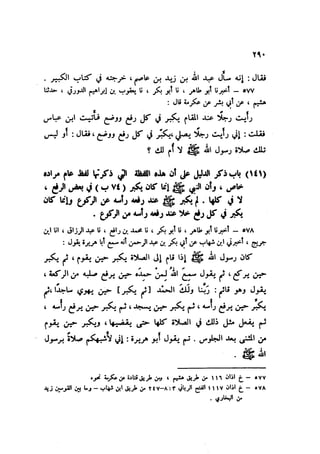 ٢٩٠
فقال : إنه سأل عبد الله بن زيد بن عاصم ، خرجته في كتاب الكبير .
٥٧٧ – أخبرنا أبو طاهر ، نا أبو بكر ، نا يعقوب بن إبراهيم الدورقي ، حدثنا
هشيم ، عن أبي بشر عن عكرمة قال :
رأيت رجلًا عند المقام يكبر في كل رفع ووضع فأتيت ابن عباس
فقلت : إني رأيت رجلًا يصلي يكبر في كل رفع ووضع ، فقال : أو ليس
تلك صلاة رسول الله ﷺ لا أم لك ؟
(١٤١) باب ذكر الدليل على أن هذه اللفظة التي ذكرتها لفظ عام مراده
خاص ، وأن النبي ﷺ إنما كان يكبر (٧٤ ب) في بعض الرفع ،
لا في كلها . لم يكبر ﷺ عند رفعه رأسه عن الركوع وإنما كان
يكبر في كل رفع خلا عند رفعه رأسه من الركوع .
٥٧٨ – أخبرنا أبو طاهر ، نا أبو بكر ، نا محمد بن رافع ، نا عبد الرزاق ، انا ابن
جريج ، أخبرني ابن شهاب عن أبي بكر بن عبد الرحمن أنه سمع أبا هريرة يقول :
كان رسول الله ﷺ إذا قام إلى الصلاة يكبر حين يقوم ، ثم يكبر
حين يركع ، ثم يقول سمع الله لمن حمده حين يرفع صلبه من الركعة ،
يقول وهو قائم : ربنا ولك الحمد [ ثم يكبر ] حين يهوي ساجدًا ، ثم
يكبر حين يرفع رأسه ، ثم يكبر حين يسجد ، ثم يكبر حين يرفع رأسه ،
ثم يفعل مثل ذلك في الصلاة كلها حتى يقضيها ، ويكبر حين يقوم
من المثنى بعد الجلوس . ثم يقول أبو هريرة : إني لأشبهكم صلاة برسول
الله ﷺ .
٥٧٧ – خ اذان ١١٦ من طريق هشيم ، ومن طريق قتادة عن عكرمة نحوه
٥٧٨ – خ اذان ١١٧ الفتح الرباني ٣ : ٨–٢٤٧ من طريق ابن شهاب – وما بين القوسين زيد
من البخاري .